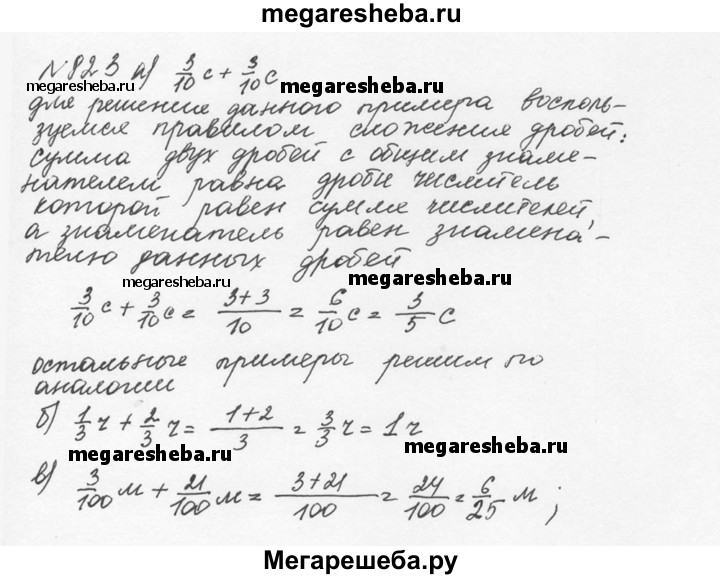 megaresheba.ru
№823 а) 3/10 с + 3/10 с
megaresheba.ru megaresheba.ru
для решения данного примера восполь-
зуемся правилом сложения дробей:
сумма двух дробей с общим знаме-
нателем равна дроби числитель
которой равен сумме числителей,
а знаменатель равен знамена-
телю данных дробей
megaresheba.ru megaresheba.ru
3/10 с + 3/10 с = 3+3/10 = 6/10 с = 3/5 с
остальные примеры решим по
аналогии
б) 1/3 ч + 2/3 ч = 1+2/3 = 3/3 ч = 1 ч
megaresheba.ru megaresheba.ru
в) 3/100 м + 21/100 м = 3+21/100 = 24/100 = 6/25 м ;
Мегарешеба.ру